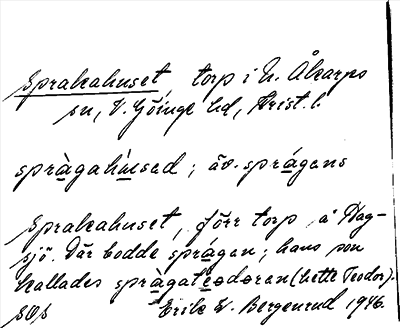 Sprakahuset, torp i N. Åkarps
sn, V. Göinge hd, Krist. l.
spràgahùsed; äv. sprágens
Sprakahuset, förr torp å Hag-
sjö. Där bodde sprágan; hans son
kallades sprágateodoran (hette Teodor).
Erik W. Bergenrud 1946.